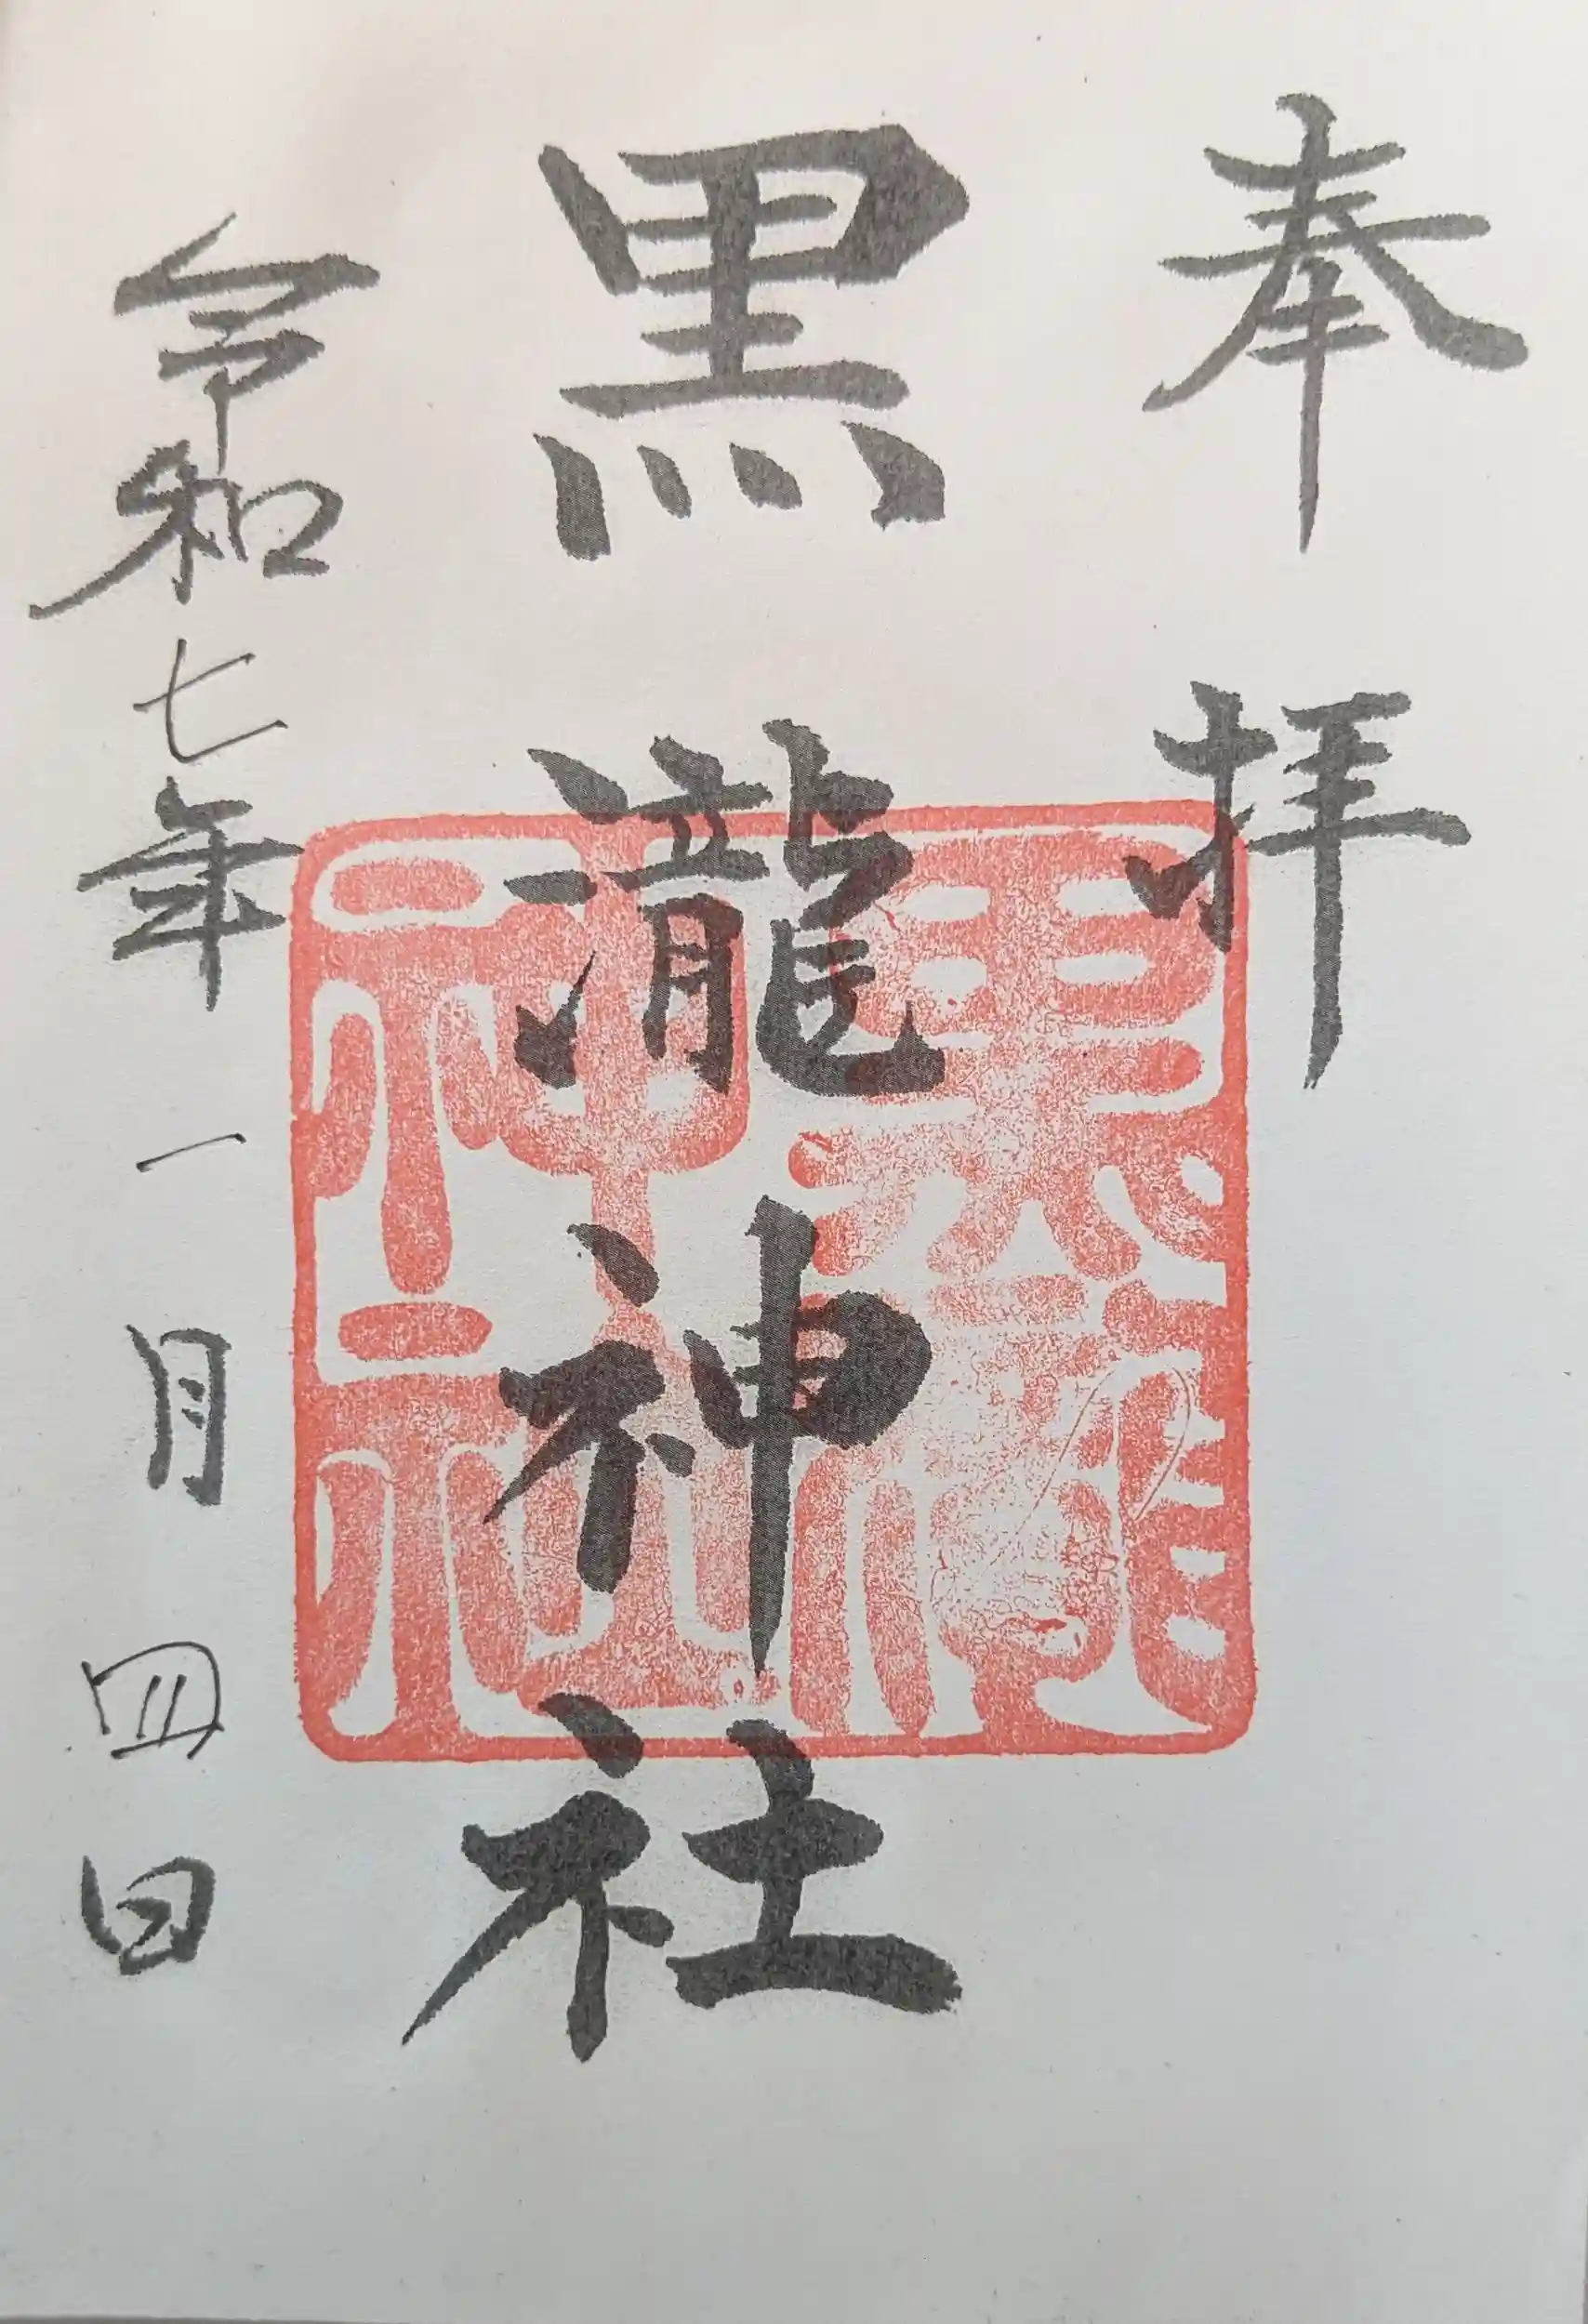 奉拝
黒瀧神社
令和七年一月四日
黒瀧
神社